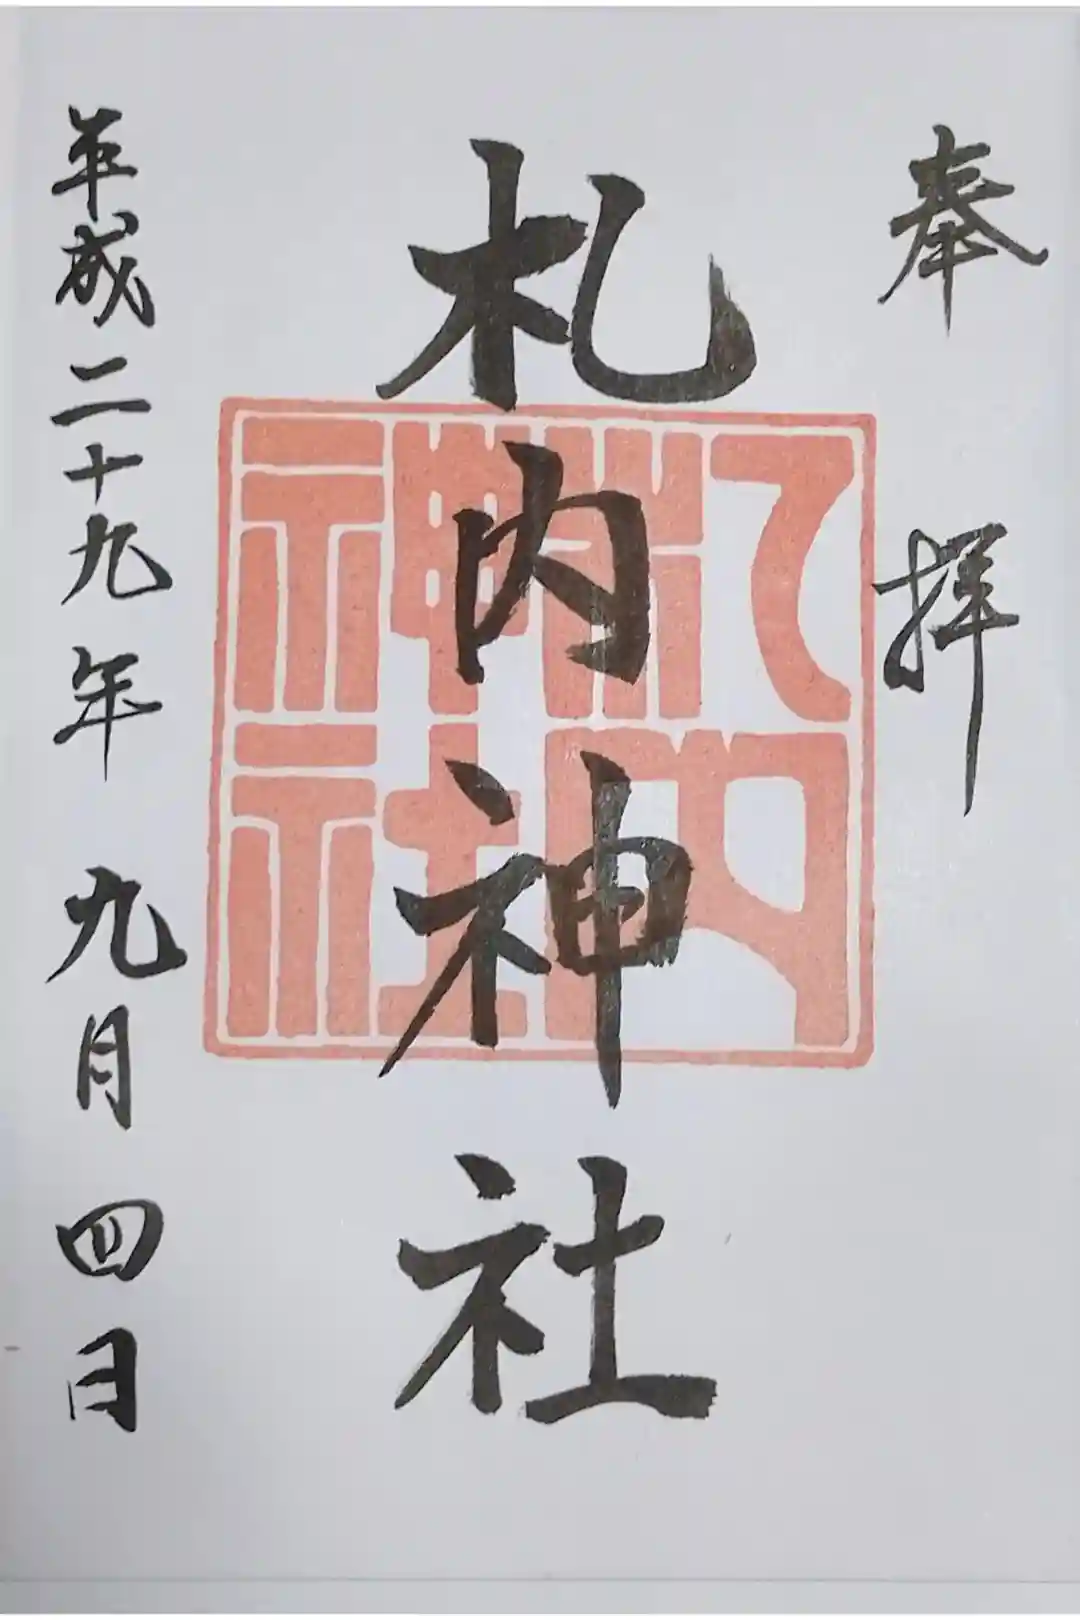 奉拝
札内神社
札内神社
平成二十九年 九月 四日